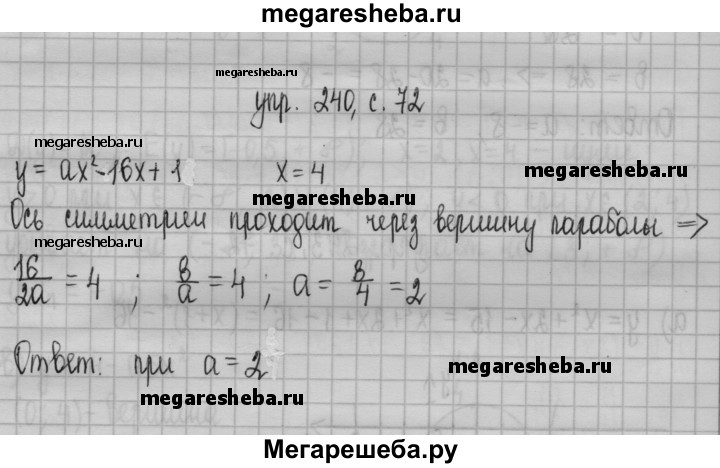 megaresheba.ru
megaresheba.ru
упр. 240, с. 72
megaresheba.ru
y = ax² - 16x + 1 x = 4
megaresheba.ru
Ось симметрии проходит через вершину параболы =>
megaresheba.ru
16/2a = 4 ; 8/a = 4 ; a = 8/4 = 2
Ответ: при a = 2
megaresheba.ru
megaresheba.ru
Мегарешеба.ру